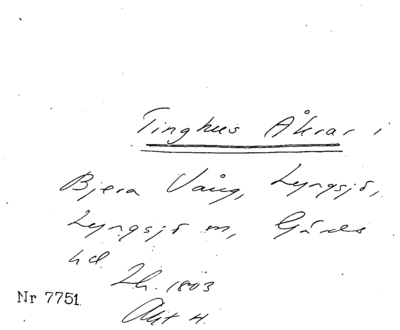 Tinghus Åkrar i
Bjera Vång, Lyngsjö,
Lyngsjö sn, Gärds
hd. Lh. 1803
Nr 7751
Akt 4.